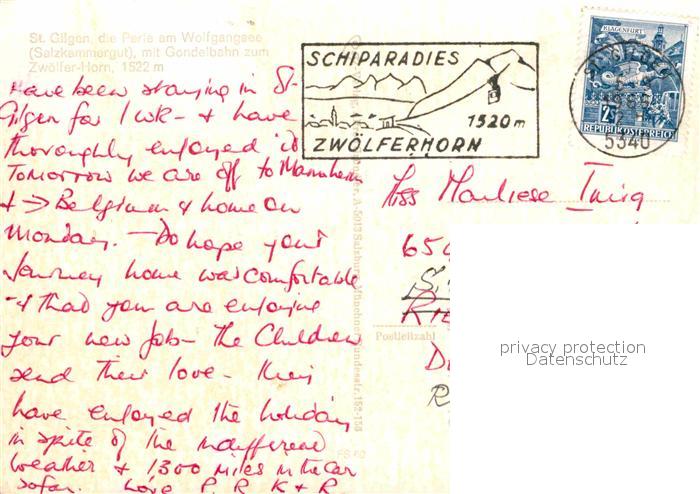 St. Gilgen, die Perle am Wolfgangsee
(Salzkammergut), mit Gondelbahn zum
Zwölfer-Horn, 1522 m
Have been staying in St-
Gilgen for 1 wk- & have
thoroughly enjoyed it
Tomorrow we are off to Mannheim
& → Belgium & home on
Monday. — Do hope your
Journey home was comfortable
- & that you are enjoying
your new job - the Children
send their love - they
have enjoyed the holiday
in spite of the indifferent
weather & 1300 miles in the car
so far. Love P. R. K & R.
SCHIPARADIES
1520 m
ZWÖLFERHORN
KLAGENFURT
2S
REPUBLIK ÖSTERREICH
5340
Miss
Postleitzahl
privacy protection
Datenschutz